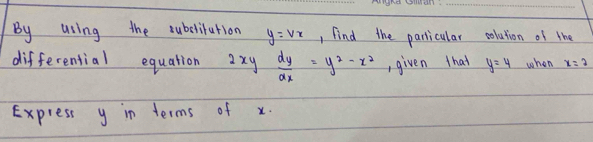 Angka Giliran :
By using the substitution y = vx , find the particular solution of the
differential equation 2xy dy/dx = y² - x² , given that y = 4 when x = 2
Express y in terms of x.